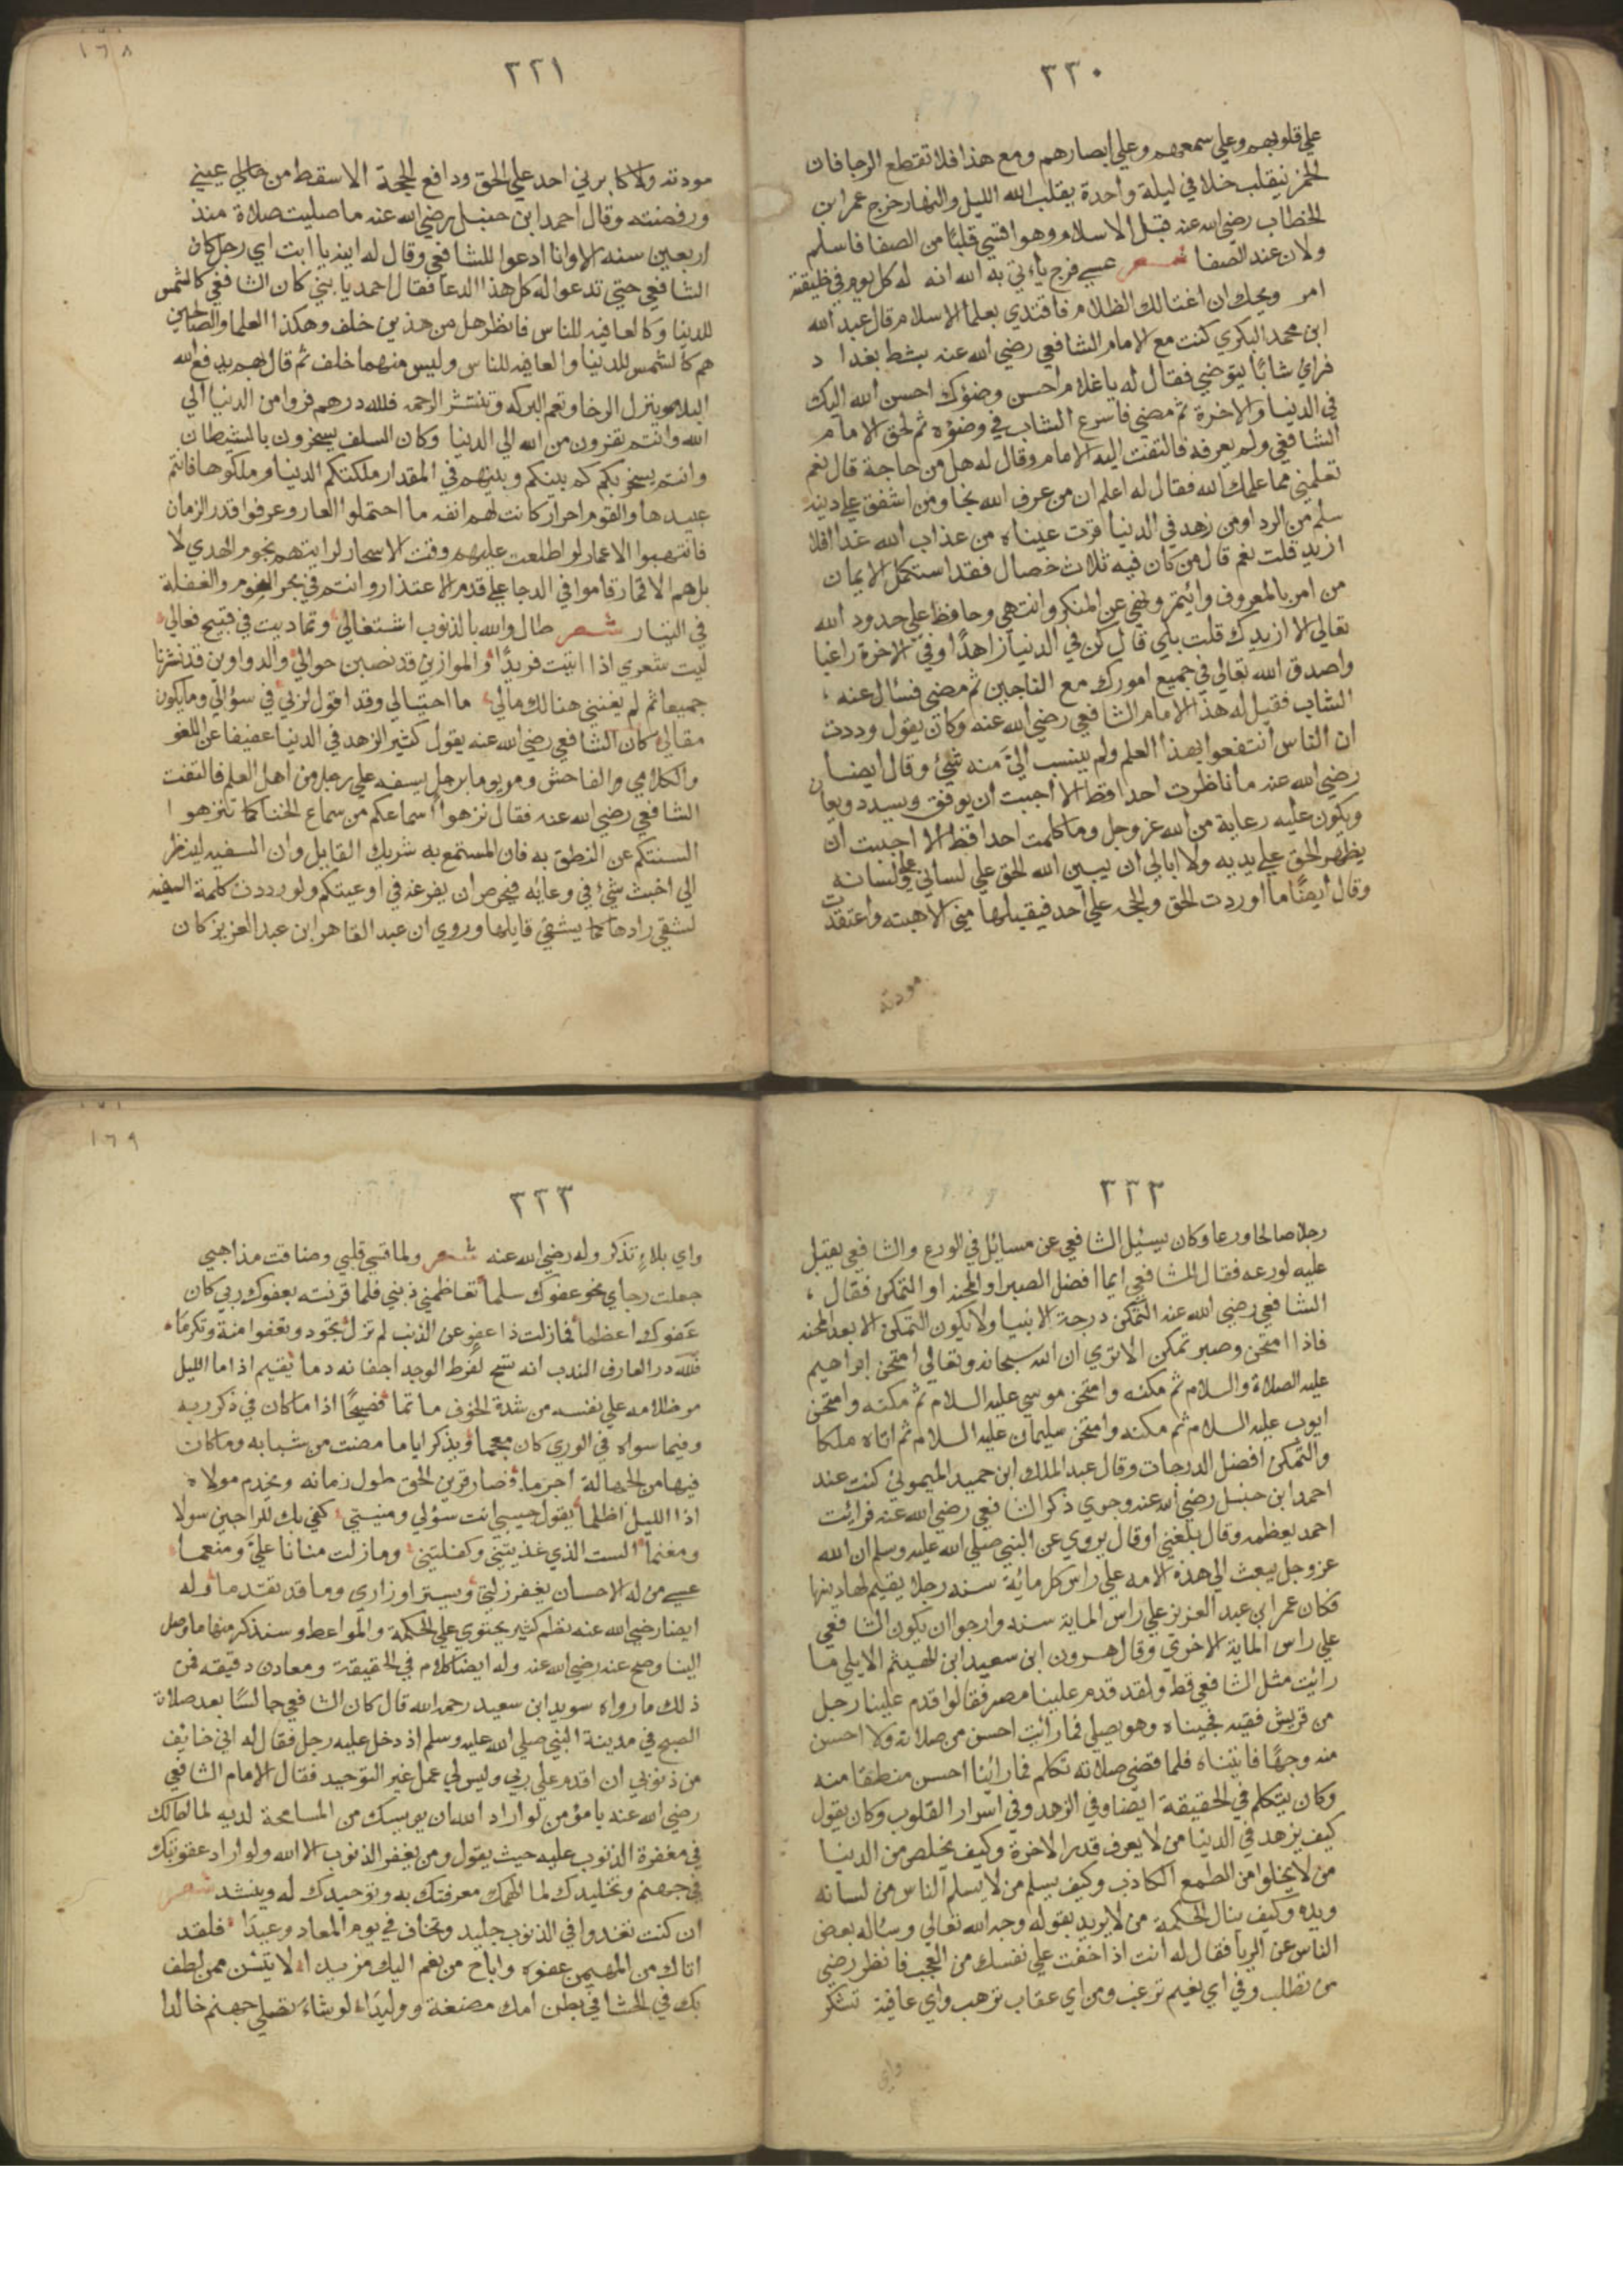 ٣٣٠
علي قلوبهم وعلي سمعهم وعلي ابصارهم ومع هذا فلا تقطع الرجا فان
الخمر ينقلب خلا في ليلة واحدة يقلب الله الليل والنهار خرج عمر ابن
الخطاب رضي الله عنه قبل الاسلام وهو اقسي قلبًا من الصفا فاسلم
ولان عند الصفا شعر عسي فرج يأتي به الله انه له كل يوم في خليقته
امر ويحك ان اغتالك الظلام فاقتدي بعلما الاسلام قال عبد الله
ابن محمد البكري كنت مع الامام الشافعي رضي الله عنه بشط بغداد
فراي شابًا يتوضي فقال له يا غلام احسن وضوئك احسن الله اليك
في الدنيا والاخرة ثم مضي فاسرع الشاب في وضوءه ثم لحق الامام
الشافعي ولم يعرفه فالتفت اليه الامام وقال له هل من حاجة قال نعم
تعلمني مما علمك الله فقال له اعلم ان من عرف الله نجا ومن اشفق علي دينه
سلم من الردا ومن زهد في الدنيا قرت عيناه من عذاب الله غدا افلا
ازيد قلت نعم قال من كان فيه ثلاث خصال فقد استكمل الايمان
من امر بالمعروف وائتمر ونهي عن المنكر وانتهي وحافظ علي حدود الله
تعالي الا ازيدك قلت بلي قال كن في الدنيا زاهدًا وفي الاخرة راغبا
واصدق الله تعالي في جميع امورك مع الناجين ثم مضي فسأل عنه
الشاب فقيل له هذا الامام الشافعي رضي الله عنه وكان يقول وددت
ان الناس انتفعوا بهذا العلم ولم ينسب اليَّ منه شئ وقال ايضا
رضي الله عنه ما ناظرت احدا قط الا احببت ان يوفق ويسدد ويعان
ويكون عليه رعاية من الله عز وجل وما كلمت احدا قط الا احببت ان
يظهر الحق علي يديه ولا ابالي ان يبين الله الحق علي لساني او علي لسانه
وقال ايضًا ما اوردت الحق والحجه علي احد فيقبلها مني الا هبته واعتقدت
مودته
٣٣١
١٦٨
مودته ولا كابرني احد علي الحق ودافع الحجة الا سقط من عيني
ورفضته وقال احمد ابن حنبل رضي الله عنه ما صليت صلاة منذ
اربعين سنه الا وانا ادعوا للشافعي وقال له ابنه يا ابت اي رجل كان
الشافعي حتي تدعوا له كل هذا الدعا فقال احمد يا بني كان الشافعي كالشمس
للدنيا وكالعافيه للناس فانظر هل من هذين خلف وهكذا العلما والصالحين
هم كالشمس للدنيا والعافيه للناس وليس منهما خلف ثم قال بهم يدفع الله
البلا وينزل الرخا وتعم البركه وتنتشر الرحمه فلله درهم فروا من الدنيا الي
الله وانتم تفرون من الله الي الدنيا وكان السلف يسخرون بالشيطان
وانتم يسخر بكم كم بينكم وبينهم في المقدار ملكتكم الدنيا وملكوها فانتم
عبيدها والقوم احرار كانت لهم انفه ما احتملوا العار وعرفوا قدر الزمان
فانتهبوا الاعمار لو اطلعت عليهم وقت الاسحار لرايتهم نجوم الهدي لا
بل هم الاقمار قاموا في الدجا علي قدم الاعتذار وانتم في بحر النوم والغفلة
في التيار شعر طال والله بالذنوب اشتغالي وتماديت في قبيح فعالي
ليت شعري اذا اتيت فريدًا والموازين قد نصبن حوالي والدواوين قد نشرنا
جميعا ثم لم يغنني هنالك مالي ما احتيالي وقد اقول لربي في سؤالي وما يكون
مقالي كان الشافعي رضي الله عنه يقول كثير الزهد في الدنيا عفيفا عن اللغو
والكلام والفاحش ومر يوما برجل يسفه علي رجل من اهل العلم فالتفت
الشافعي رضي الله عنه فقال نزهوا اسماعكم من سماع الخنا كما تنزهوا
السنتكم عن النطق به فان المستمع به شريك القايل وان السفيه لينظر
الي اخبث شئ في وعايه فيحرص ان يفرغه في اوعيتكم ولو رددت كلمة السفيه
لشقي رادها كما يشقي قايلها وروي ان عبد القاهر ابن عبد العزيز كان
٣٣٢
رجلا صالحا ورعا وكان يسئيل الشافعي عن مسائل في الورع والشافعي يقبل
عليه لورعه فقال للشافعي ايما افضل الصبر او المحنه او التمكن فقال
الشافعي رضي الله عنه التمكن درجة الانبيا ولا يكون التمكن الا بعد المحنه
فاذا امتحن وصبر تمكن الا تري ان الله سبحانه وتعالي امتحن ابراهيم
عليه الصلاة والسلام ثم مكنه وامتحن موسي عليه السلام ثم مكنه وامتحن
ايوب عليه السلام ثم مكنه وامتحن سليمان عليه السلام ثم اتاه ملكا
والتمكن افضل الدرجات وقال عبد الملك ابن حميد الميموني كنت عند
احمد ابن حنبل رضي الله عنه وجري ذكر الشافعي رضي الله عنه فرائت
احمد يعظمه وقال بلغني او قال يروي عن النبي صلي الله عليه وسلم ان الله
عز وجل يبعث الي هذه الامه علي راس كل مائة سنه رجلا يقيم لها دينها
فكان عمر ابن عبد العزيز علي راس الماية سنه وارجوا ان يكون الشافعي
علي راس الماية الاخري وقال هرون ابن سعيد ابن الهيثم الايلي ما
رائت مثل الشافعي قط ولقد قدم علينا مصر فقالوا قدم علينا رجل
من قريش فقيه فجيناه وهو يصلي فما رائت احسن من صلاته ولا احسن
منه وجهًا فاتيناه فلما قضي صلاته تكلم فما رائنا احسن منطقا منه
وكان يتكلم في الحقيقة ايضا وفي الزهد وفي اسرار القلوب وكان يقول
كيف يزهد في الدنيا من لا يعرف قدر الاخرة وكيف يخلص من الدنيا
من لا يخلوا من الطمع الكاذب وكيف يسلم من لا يسلم الناس من لسانه
ويده وكيف ينال الحكمة من لا يريد بقوله وجه الله تعالي وساله بعض
الناس عن الريا فقال له انت اذا خفت علي نفسك من العجب فانظر رضي
من تطلب وفي اي نعيم ترغب ومن اي عقاب ترهب واي عافية تشكر
واي
٣٣٣
١٦٩
واي بلاءٍ تذكر وله رضي الله عنه شعر ولما قسي قلبي وضاقت مذاهبي
جعلت رجاي نحو عفوك سلما تعاظمني ذنبي فلما قرنته بعفوك ربي كان
عفوك اعظما فما زلت ذا عفو عن الذنب لم تزل تجود وتعفوا منة وتكرمًا
فلله در العارف الندب انه تسح لفرط الوجد اجفانه دما يقيم اذا ما الليل
مد ظلامه علي نفسه من شدة الخوف ماتما فصيحًا اذا ما كان في ذكر ربه
وفيما سواه في الوري كان معجما ويذكر اياما مضت من شبابه وما كان
فيها من الجهالة اجرما فصار قرين الحق طول زمانه ويخدم مولاه
اذا الليل اظلما يقول حبيبي انت سؤلي ومنيتي كفي بك للراجين سولا
ومغنما الست الذي غذيتني وكفلتني وما زلت منانا عليَّ ومنعما
عسي من له الاحسان يغفر زلتي ويستر اوزاري وما قد تقدما وله
ايضا رضي الله عنه نظم كثير يحتوي علي الحكمة والمواعظ وسنذكر منها ما وصل
الينا وصح عنه رضي الله عنه وله ايضا كلام في الحقيقة ومعادن دقيقه فمن
ذلك ما رواه سويد ابن سعيد رحمه الله قال كان الشافعي جالسًا بعد صلاة
الصبح في مدينة النبي صلي الله عليه وسلم اذ دخل عليه رجل فقال له اني خايف
من ذنوبي ان اقدم علي ربي وليس لي عمل غير التوحيد فقال الامام الشافعي
رضي الله عنه يا مؤمن لو اراد الله ان يويسك من المسامحة لديه لما احالك
في مغفرة الذنوب عليه حيث يقول ومن يغفر الذنوب الا الله ولو اراد عقوبتك
في جهنم وتخليدك لما الهمك معرفتك به وتوحيدك له وينشد شعر
ان كنت تغدوا في الذنوب جليد وتخاف في يوم المعاد وعيدًا فلقد
اتاك من المهيمن عفوه واباح من نعم اليك مزيدا لا تيئسن من لطف
بك في الحشا في بطن امك مضغة ووليدًا لو شاء تصلي جهنم خالدا